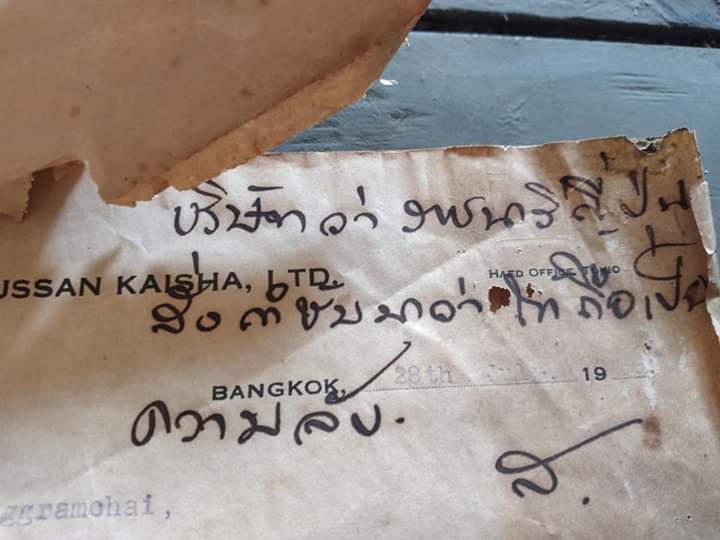 บริษัทว่า ญี่ปุ่น
USSAN KAISHA, LTD. HAED OFFICE, TOKIO
สั่งกำชับมาว่า ให้ถือเป็น
BANGKOK, 28th July, 19
ความลับ.
ส.
ggramchai,